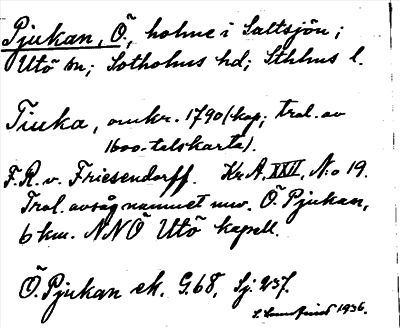 Pjukan, Ö., holme i Saltsjön;
Utö sn; Sotholms hd; Sthlms l.
Tiuka, omkr. 1790 (kop; trol. av
1600-talskarta).
F.R. v. Friesendorff. Kr.A. XXII, N:o 19.
Trol. avsåg namnet nuv. Ö. Pjukan,
6 km. NNÖ Utö kapell.
Ö. Pjukan ek. G.68, Sj. 237.
1936.